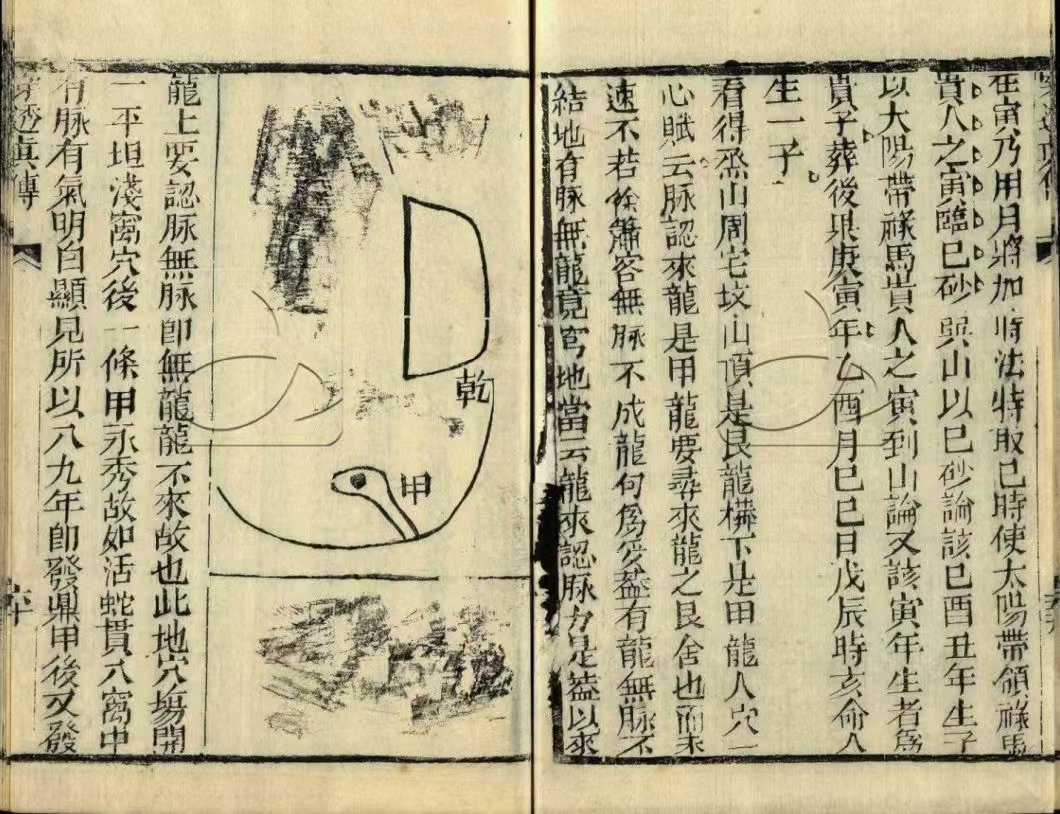 在寅乃用月將加時法特取巳時使太陽帶領祿馬
貴人之寅臨巳砂吳山以巳砂論該巳酉丑年生子
以大陽帶祿馬貴人之寅到山論又該寅年生者爲
貴子葬後果庚寅年乙酉月己巳日戊辰時亥命人
生一子
看得烝山周宅坟山頂是艮龍橫下是甲龍入穴一
心賦云脉認來龍是甲龍要尋來龍之艮舍也而未
速不若 無脉不成龍句爲 葢有龍無脉不
結地有脉無龍竟 地當云龍來認脉方是葢以來
乾
甲
龍上要認脉無脉卽無龍龍不來故也此地穴塲開
一平坦淺窩穴後一條甲 秀故如活蛇貫入窩中
有脉有氣明白顯見所以八九年卽發鼎甲後又發
透眞傳